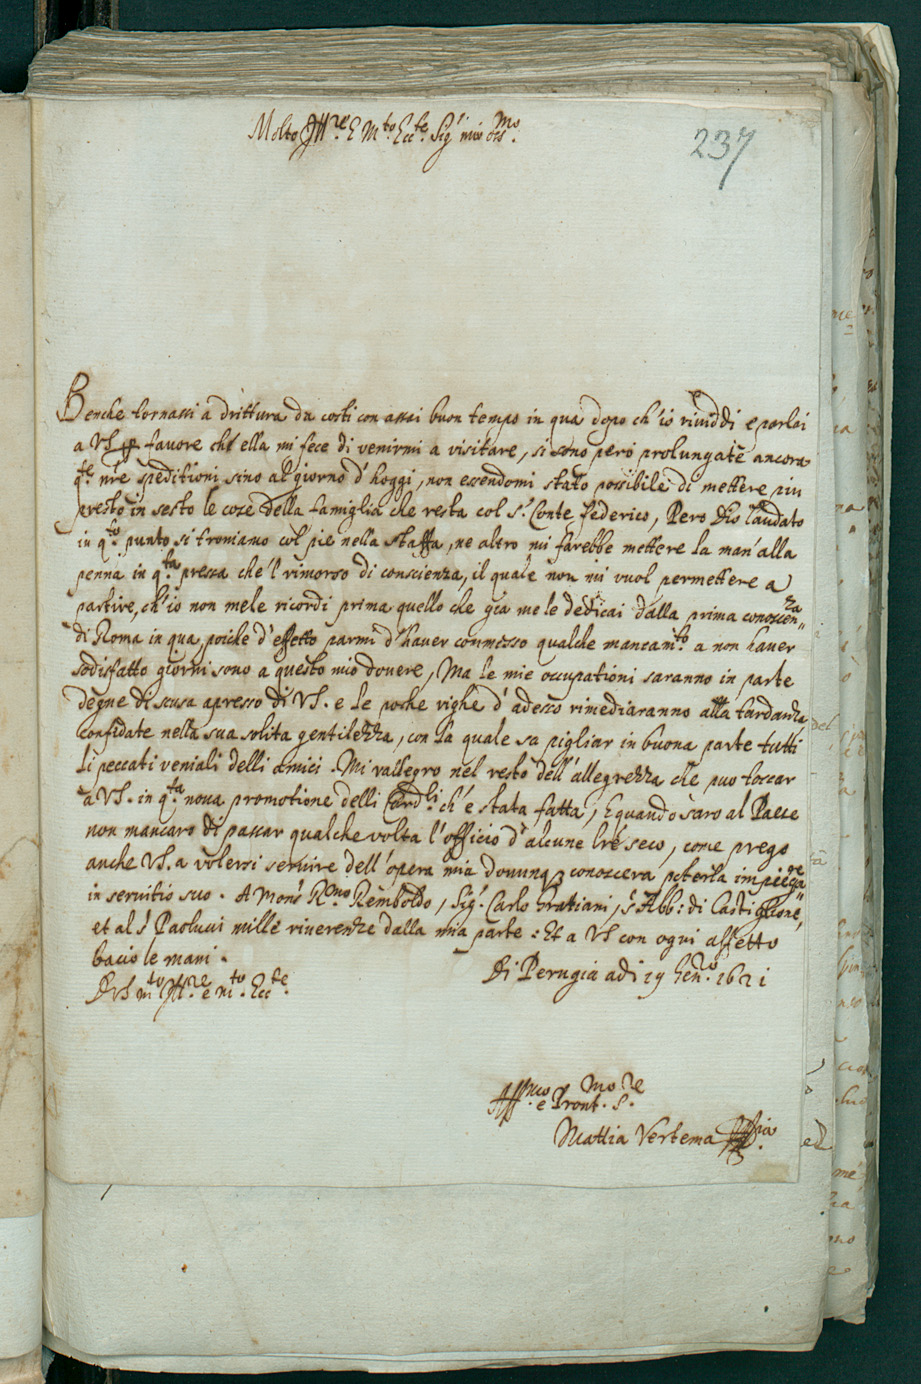 Molto Ill.re E M.to Ecc.te Sig.r mio oss.mo
237
Benche tornassi a drittura da costi con assai buon tempo in qua dopo ch'io rividdi e parlai
a VS. p favore ch'ella mi fece di venirmi a visitare, si sono però prolungate ancora
q.te nre speditioni sino al giorno d'hoggi, non essendomi stato possibile di mettere piu
presto in sesto le cose della famiglia che resta col S.r Conte federico, Pero Dio laudato
in q.to punto si troviamo col pie nella staffa, ne altro mi farebbe mettere la man' alla
penna in q.ta pressa che'l rimorso di conscienza, il quale non mi vuol permettere a
partire, ch'io non mele ricordi prima quello che gia me le dedicai dalla prima conoscen.za
di Roma in qua, poiche d'effetto parmi d'haver commesso qualche mancam.to a non haver
sodisfatto giorni sono a questo mio dovere, Ma le mie occupationi saranno in parte
degne di scusa apresso di VS. e le poche righe d'adesso rimediaranno alla tardanza
confidate nella sua solita gentilezza, con la quale sa pigliar in buona parte tutti
li peccati veniali delli amici. Mi rallegro nel resto dell'allegrezza che puo toccar
a VS. in q.ta nova promotione delli Card.li ch'e stata fatta, E quando saro al Paese
non mancaro di passar qualche volta l'officio d'alcune lre seco, come prego
anche VS. a volersi servire dell'opera mia dovunq conoscera poterla impiegare
in servitio suo. A Mons.r R.mo Remboldo, Sig.r Carlo Gratiani, S.r Abb: di Castiglione,
et al S.r Paolucci mille riverenze dalla mia parte: Et a VS con ogni affetto
bacio le mani.
Di VS m.to Ill.re e m.to Ecc.te
Di Perugia adi 19 Gen.ro 1621
Aff.mo e Pront.mo S.re
Mattia Vertema